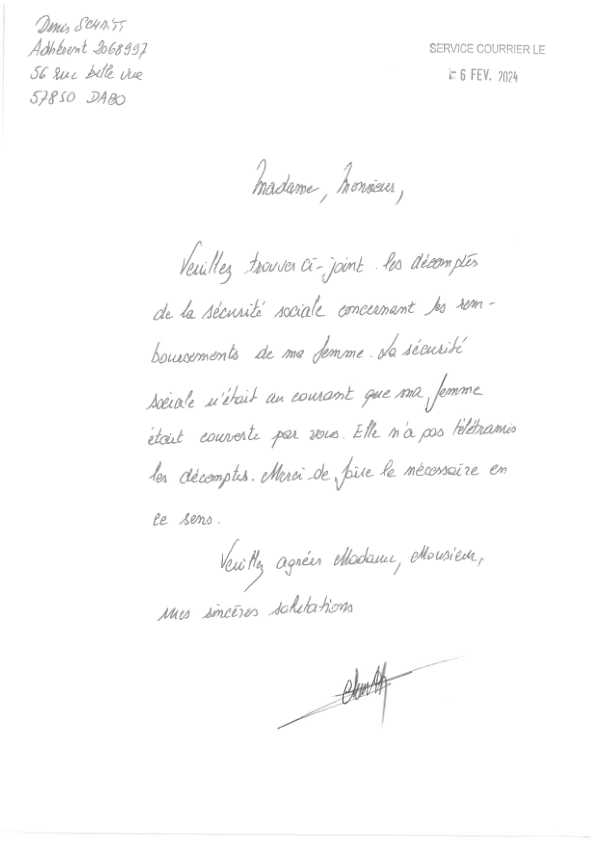 Denis SCHMITT
Adhérent 2068997
56 rue belle vue
57850 DABO
SERVICE COURRIER LE
6 FEV. 2024
Madame, Monsieur,
Veuillez trouver ci-joint les décomptes
de la sécurité sociale concernant les rem-
boursements de ma femme. La sécurité
sociale n'était au courant que ma femme
était couverte par vous. Elle n'a pas télétramis
les décomptes. Merci de faire le nécessaire en
ce sens.
Veuillez agréer Madame, Monsieur,
mes sincères salutations